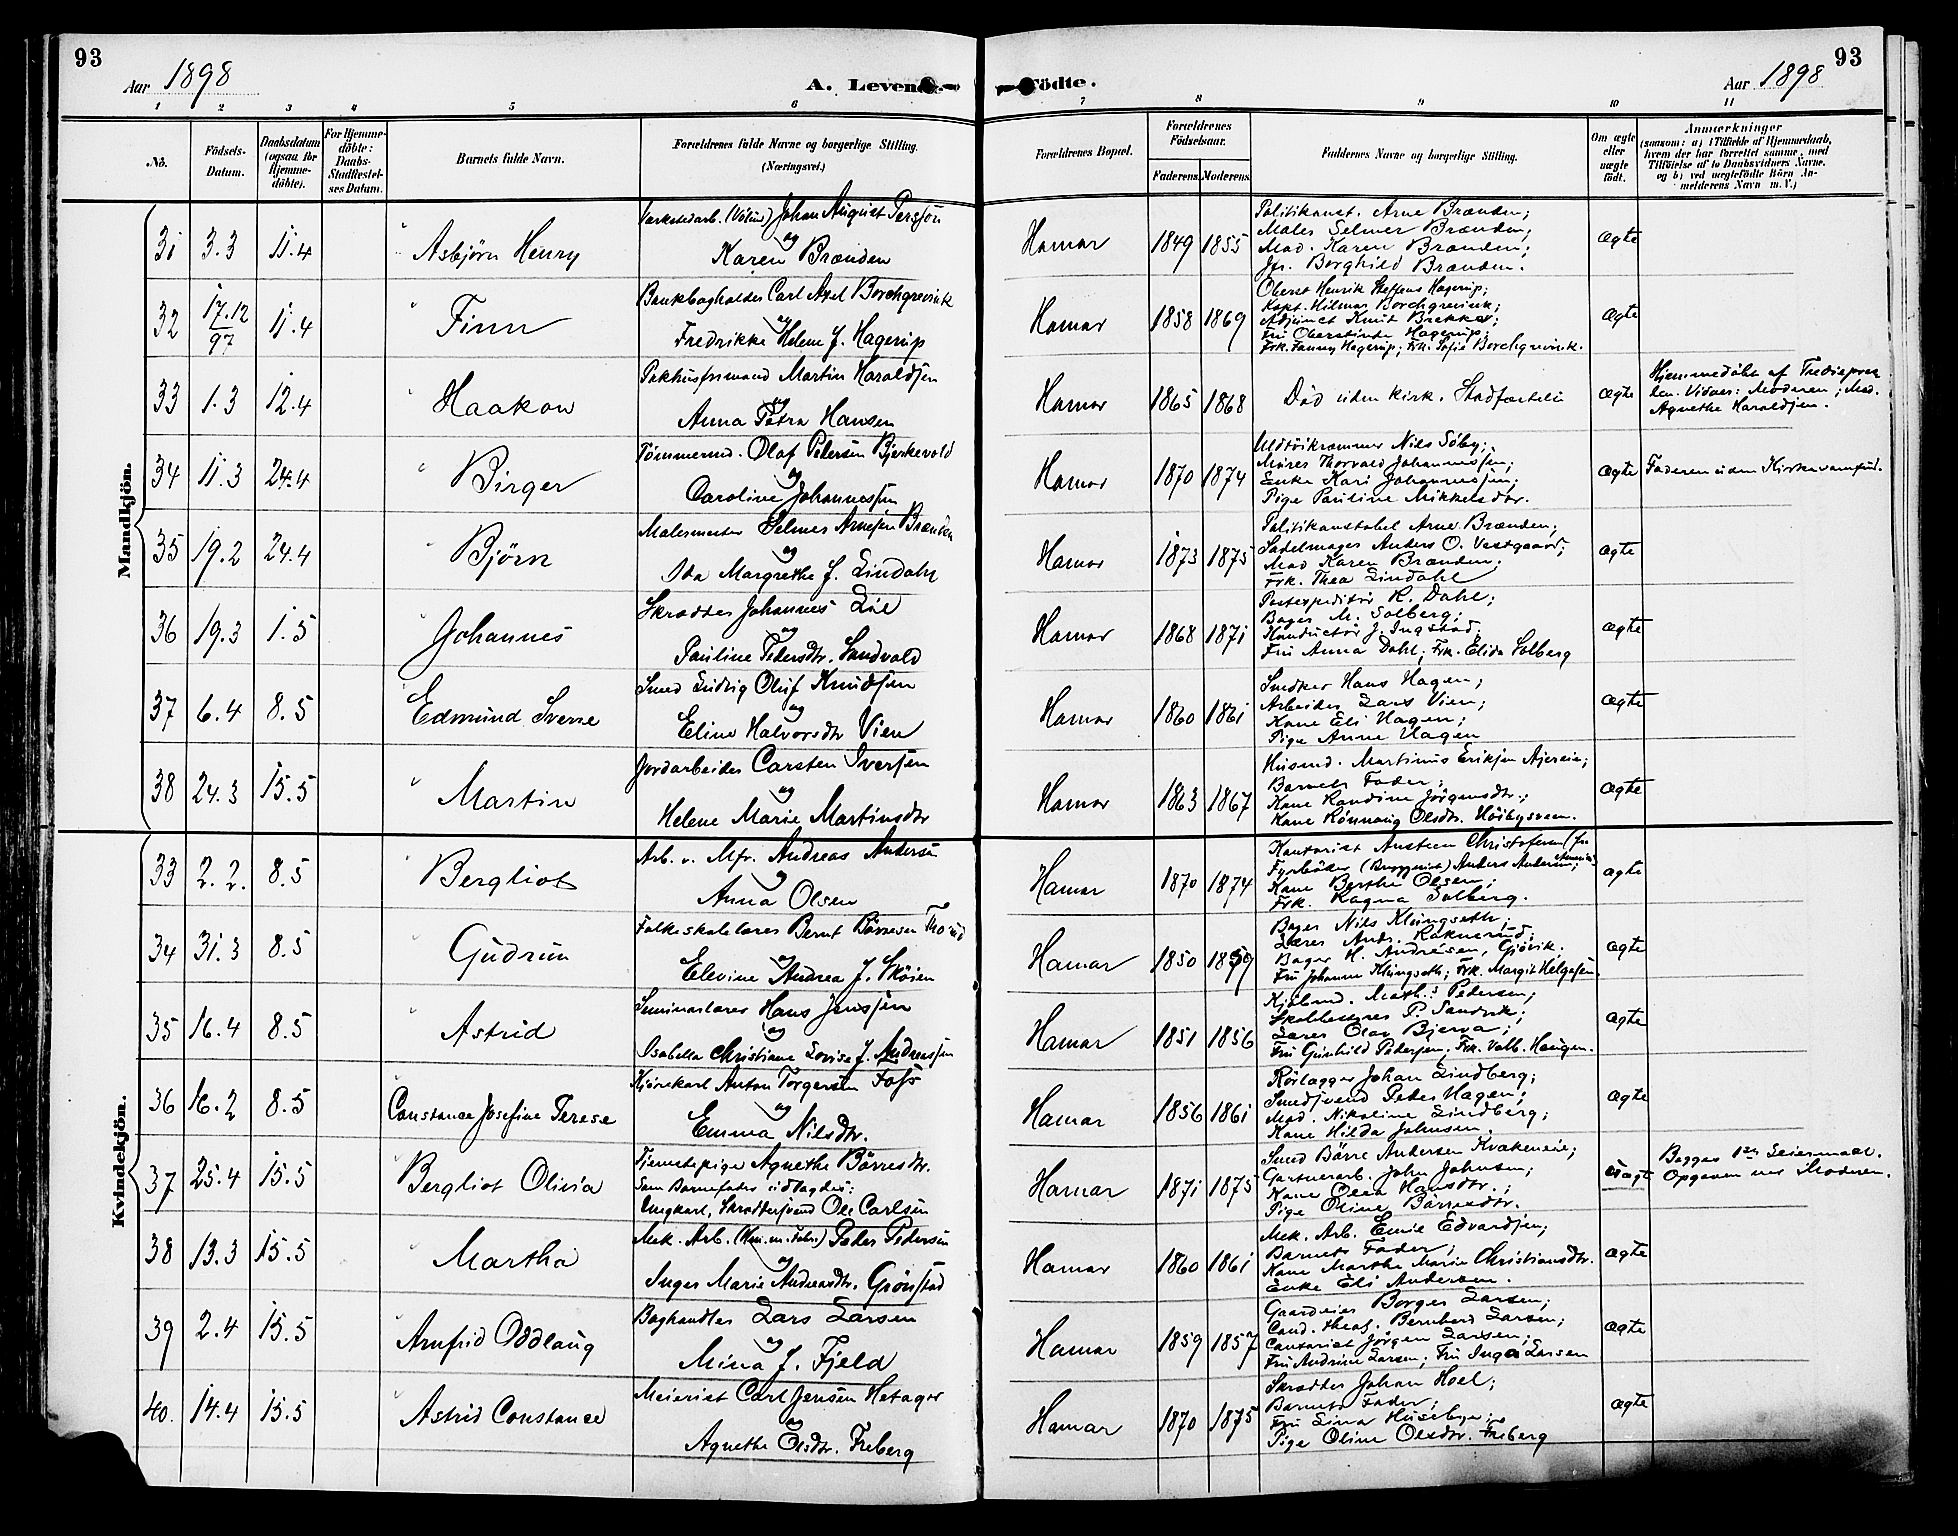 93
93
Aar 1898
A. Levende Födte.
Aar 1898
1 2 3 4 5 6 7 8 9 10 11
No.
Födsels-Datum.
Daabsdatum (ogsaa for Hjemme-döbte).
For Hjemme-döbte: Daabs-Stadfæstelses Datum.
Barnets fulde Navn.
Forældrenes fulde Navne og borgerlige Stilling. (Næringsvei.)
Forældrenes Bopæl.
Forældrenes Födselsaar.
Faderens. Moderens.
Faddernes Navne og borgerlige Stilling.
Om ægte eller uægte födt.
Anmærkninger
(saasom: a) i Tilfælde af Hjemmedaab, hvem der har forrettet samme, med Tilföielse af to Daabsvidners Navne, og b) ved uægtefödte Börn Anmelderens Navn m. V.)
Mandkjön.
31 3.3 11.4 Asbjørn Henry
Johan August Persson
og
Karen Brænden
Hamar 1849 1855
Politikonst. Arne Brænden;
Maler Selmer Brænden;
Mad. Karen Brænden;
Jfr. Borghild Brænden.
Ægte
32 17.12/97 11.4 Finn
Bankbogholder Carl Axel Borchgrevink
og
Fredrikke Helene J. Hagerup
Hamar 1858 1869
Oberst Henrik Steffens Hagerup;
Kapt. Hilmar Borchgrevink;
Adjunct Knut Brekke;
Fru Oberstinde Hagerup;
Frk. Fanny Hagerup; Frk. Sofie Borchgrevink.
Ægte
33 1.3 12.4 Haakon
Pakhusformand Martin Haraldsen
og
Anna Petra Hansen
Hamar 1865 1868
Død uden kirk. Stadfæstelse
Ægte
Hjemmedøbt af
Vidner: Moderen; Mad.
Agnethe Haraldsen.
34 11.3 24.4 Birger
Tømmermd. Olaf Petersen Bjerkevold
og
Caroline Johannessen
Hamar 1870 1874
Nils Søby;
Murer Thorvald Johannessen;
Enke Kari Johannessen;
Pige Pauline Mikkelsdtr.
Ægte
Faderen uden Kirkesamfund.
35 19.2 24.4 Bjørn
Malermester Selmer Arnesen Brænden
og
Ida Margrethe J. Lindahl
Hamar 1873 1875
Politikonstabel Arne Brænden;
Sadelmager Anders O. Vestgaard;
Mad Karen Brænden;
Frk. Thea Lindahl
Ægte
36 19.3 1.5 Johannes
Skrædder Johannes Lie
og
Pauline Pedersdtr. Sandvold
Hamar 1868 1871
Postexpeditør K. Dahl;
Bager M. Solberg;
Konductør J. Ingstad;
Fru Anna Dahl; Frk. Elida Solberg
Ægte
37 6.4 8.5 Edmund Sverre
Smed Ludvig Oluf Knudsen
og
Eline Halvorsdtr Vien
Hamar 1860 1861
Snedker Hans Hagen;
Arbeider Lars Vien;
Kone Eli Hagen;
Pige Anne Hagen
Ægte
38 24.3 15.5 Martin
Jordarbeider Carsten Iversen
og
Helene Marie Martinsdtr
Hamar 1863 1867
Husmd. Martinus Eriksen Ajereie;
Barnets Fader;
Kone Randine Jørgensdtr.;
Kone Rønnaug Olsdtr. Høibysveen.
Ægte
Kvindekjön.
33 2.2. 8.5 Bergliot
Arb. v. Mfr. Andreas Andersen
og
Anna Olsen
Hamar 1870 1874
Kontorist Austeen Christofersen
Fyrbøder (Bryggeriet) Anders Andersen;
Kone Berthe Olsen;
Frk. Ragna Solberg.
Ægte
34 31.3 8.5 Gudrun
Folkeskolelærer Bernt Børresen
og
Elevine Andrea J. Skøien
Hamar 1850 1859
Bager Nils Klungseth;
Lærer Andr. Raknerud;
Bager H. Andresen, Gjøvik.
Fru Johanne Klungseth; Frk. Margit Helgesen
Ægte
35 16.4 8.5 Astrid
Seminarlærer Hans Jenssen
og
Isabella Christiane Lovise J. Andreassen
Hamar 1851 1856
Kjøbmd. Math.s Petersen;
Skolbestyrer P. Sandvik;
Lærer Olav Bjerva;
Fru Gunhild Petersen; Frk. Valb. Haugen.
Ægte
36 16.2 8.5 Constance Josefine Terese
Kjørekarl Anton Torgersen Foss
og
Emma Nilsdtr.
Hamar 1856 1861
Rørlægger Johan Lindberg;
Smedsvend Peter Hagen;
Mad. Nikoline Lindberg;
Kone Hilda Johnsen.
Ægte
37 25.4 15.5 Bergliot Olivia
Tjenestepige Agnethe Børresdtr.
Som Barnefader udlagdes:
Ungkarl, Skrædersvend Ole Carlsen
Hamar 1871 1875
Smed Børre Andersen Krakeneie;
Gartnerarb. John Johnsen;
Kone Olea Hansdtr.;
Pige Oline Børresdtr.
Uægte
Begges 1ste Leiermaal.
Opgaven ved Moderen.
38 13.3 15.5 Martha
Mek. Arb. Peder Pedersen
og
Inger Marie Andreasdtr. Grønstad
Hamar 1860 1861
Mek. Arb. Emil Edvardsen;
Barnets Fader;
Kone Marthe Marie Christiansdtr.
Enke Eli Andersen.
Ægte
39 2.4 15.5 Arnfrid Oddlaug
Boghandler Lars Larsen
og
Mina J. Fjeld
Hamar 1859 1857
Gaardeier Borger Larsen;
Cand. theol. Bernhard Larsen;
Contorist Jørgen Larsen;
Fru Andrine Larsen; Fru Inga Larsen
Ægte
40. 14.4 15.5 Astrid Constance
Meierist Carl Jensen Hetager
og
Agnethe Olsdtr. Freberg
Hamar 1870 1875
Skrædder Johan Hoel;
Barnets Fader;
Fru Lina Huseby;
Pige Oline Olsdtr. Freberg
Ægte